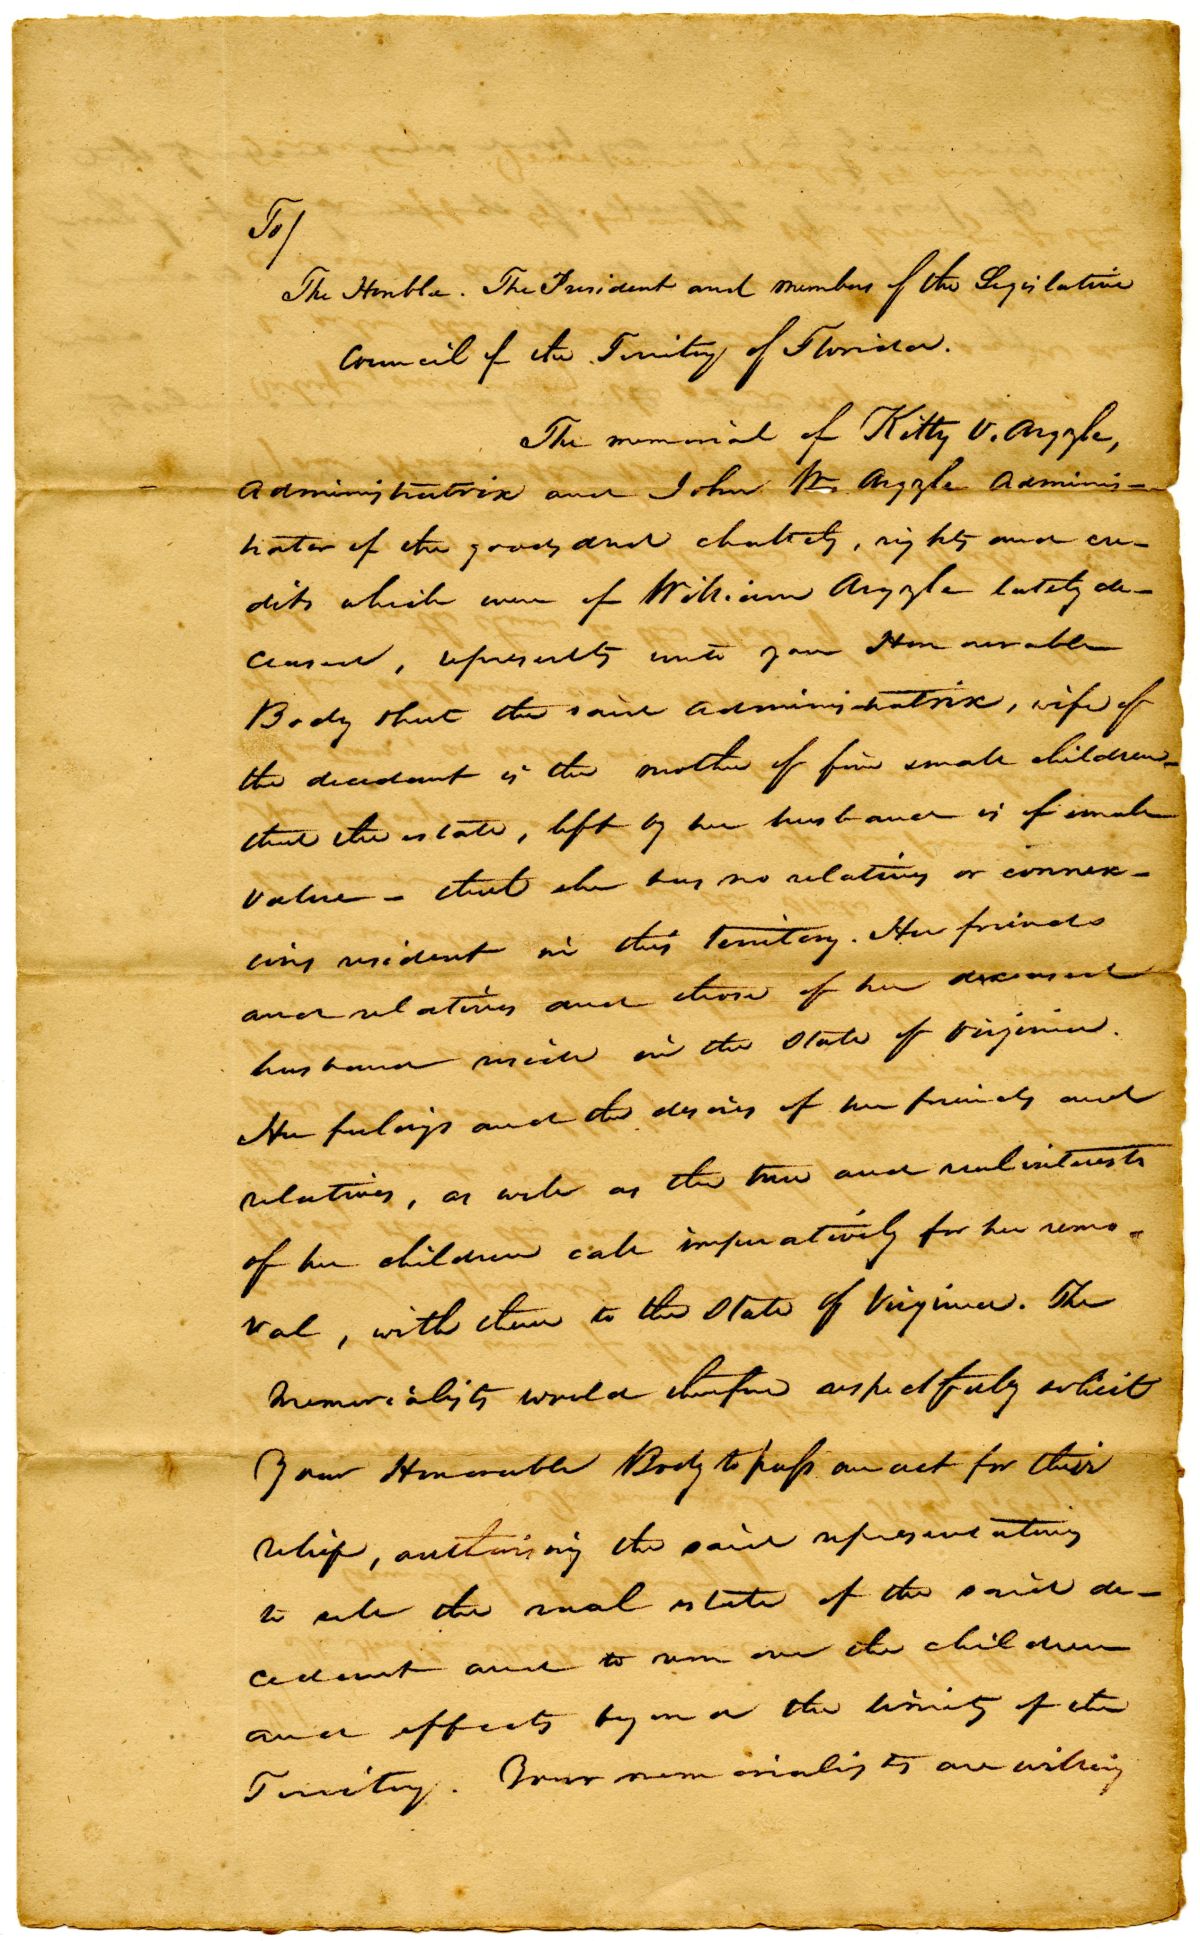 To/
The Honble. The President and members of the Legislative
Council of the Territory of Florida.
The memorial of Kitty V. Argyle,
Administratrix and John W. Argyle Adminis-
trator of the goods and chattels, rights and cre-
dits which were of William Argyle lately de-
ceased, represents unto your Honourable
Body that the said administratrix, wife of
the decedant is the mother of five small children-
that the estate, left by her husband is of small
value - that she has no relatives or connex-
ions resident in this Territory. Her friends
and relatives and those of her deceased
husband reside in the State of Virginia.
Her feelings and the desires of her friends and
relatives, as well as the true and real interests
of her children call imperatively for her remo-
val, with them to the State of Virginia. The
Memorialists would therefore respectfully solicit
Your Honorable Body to pass an act for their
relief, authorising the said representatives
to sell the real estate of the said de-
cedant and to remove the children
and effects beyond the limits of the
Territory. Your memorialists are willing